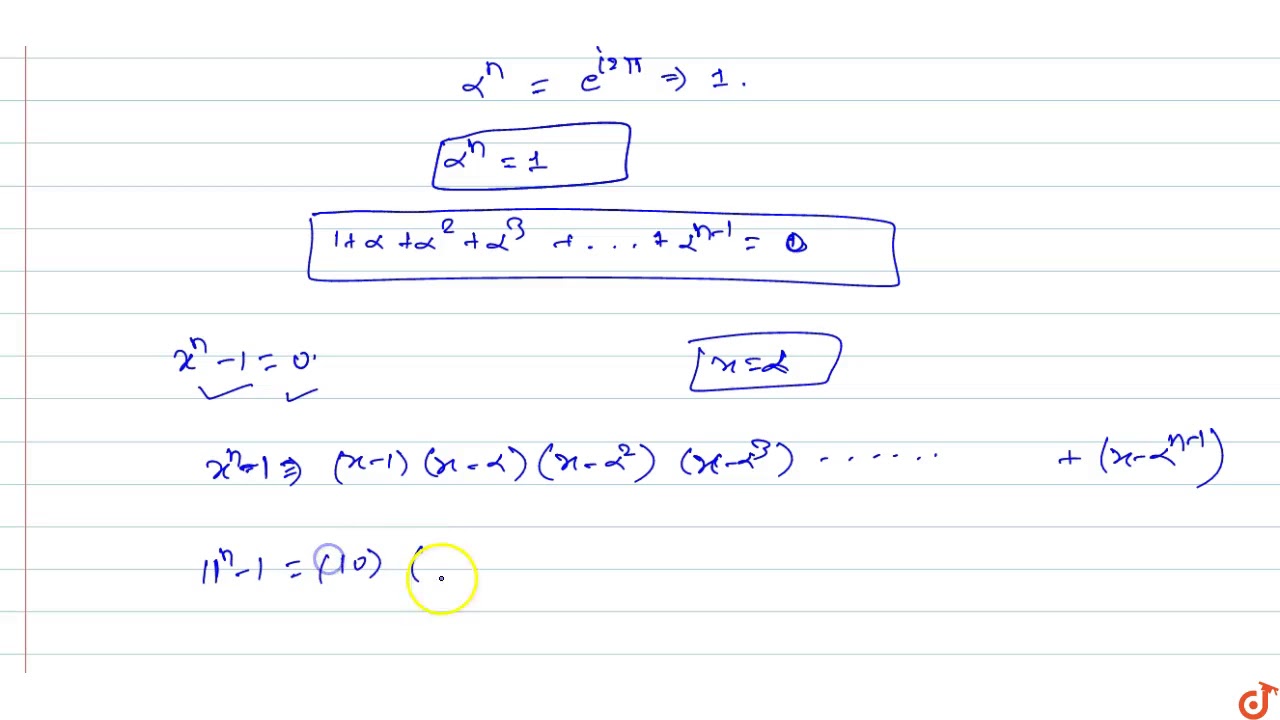 αⁿ = e^{i2π} ⇒ 1.
αⁿ = 1
1+α+α²+α³ + . . . + αⁿ⁻¹ = 0
xⁿ-1=0.
x=α
xⁿ-1 ⇒ (x-1) (x-α) (x-α²) (x-α³) . . . . . . + (x-αⁿ⁻¹)
11ⁿ-1 = (10) (